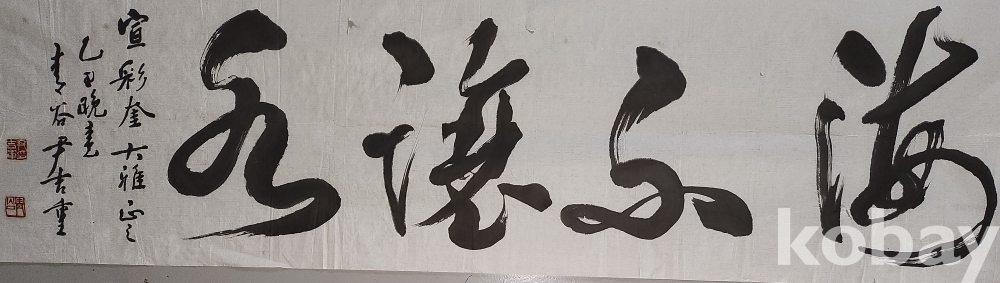 海不讓水
宣彩奎大雅正之
乙丑晩書
青谷尹吉重
kobay